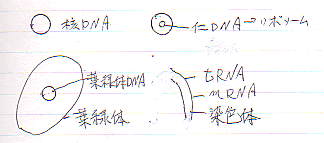 核DNA
仁DNA→リボソーム
葉緑体DNA
葉緑体
tRNA
mRNA
染色体